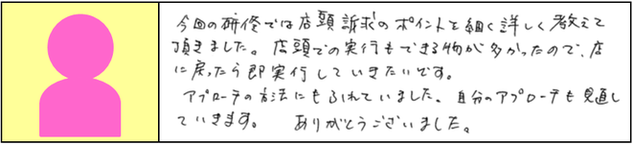 今回の研修では店頭訴求のポイントを細く詳しく教えて
頂きました。店頭での実行もできる物が多かったので、店
に戻ったら即実行していきたいです。
アプローチの方法にもふれていました。自分のアプローチも見直し
ていきます。 ありがとうございました。